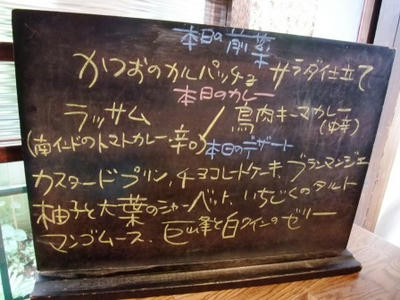 本日の前菜
かつおのカルパッチョ サラダ仕立て
本日のカレー
ラッサム / 鳥肉キーマカレー
(南インドのトマトカレー・辛口) (中辛)
本日のデザート
カスタードプリン、チョコレートケーキ、ブランマンジェ
柚子と大葉のシャーベット、いちじくのタルト
マンゴムース、巨峰と白ワインのゼリー